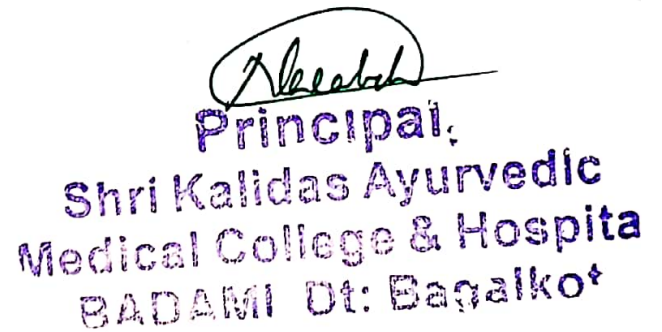 Principal,
Shri Kalidas Ayurvedic
Medical College & Hospita
BADAMI Dt: Bagalkot